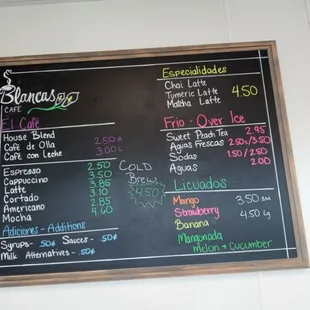 Blancas
CAFE
El Café
House Blend
Café de Olla 2.50 s
Café con Leche 3.00 L
Espresso 2.50
Cappuccino 3.50
Latte 3.85
Cortado 3.10
Americano 2.85
Mocha 4.60
Adiciones - Additions
Syrups - .50¢ Sauces - .50¢
Milk Alternatives - .50¢
COLD
Brew
4.50
Especialidades
Chai Latte
Tumeric Latte 4.50
Matcha Latte
Frio - Over Ice
Sweet Peach Tea 2.95
Aguas Frescas 2.50s/3.50L
Sodas 1.50/2.50
Aguas 2.00
Licuados
Mango 3.50 sm
Strawberry 4.50 Lg
Banana
Mangonada
Melon + Cucumber